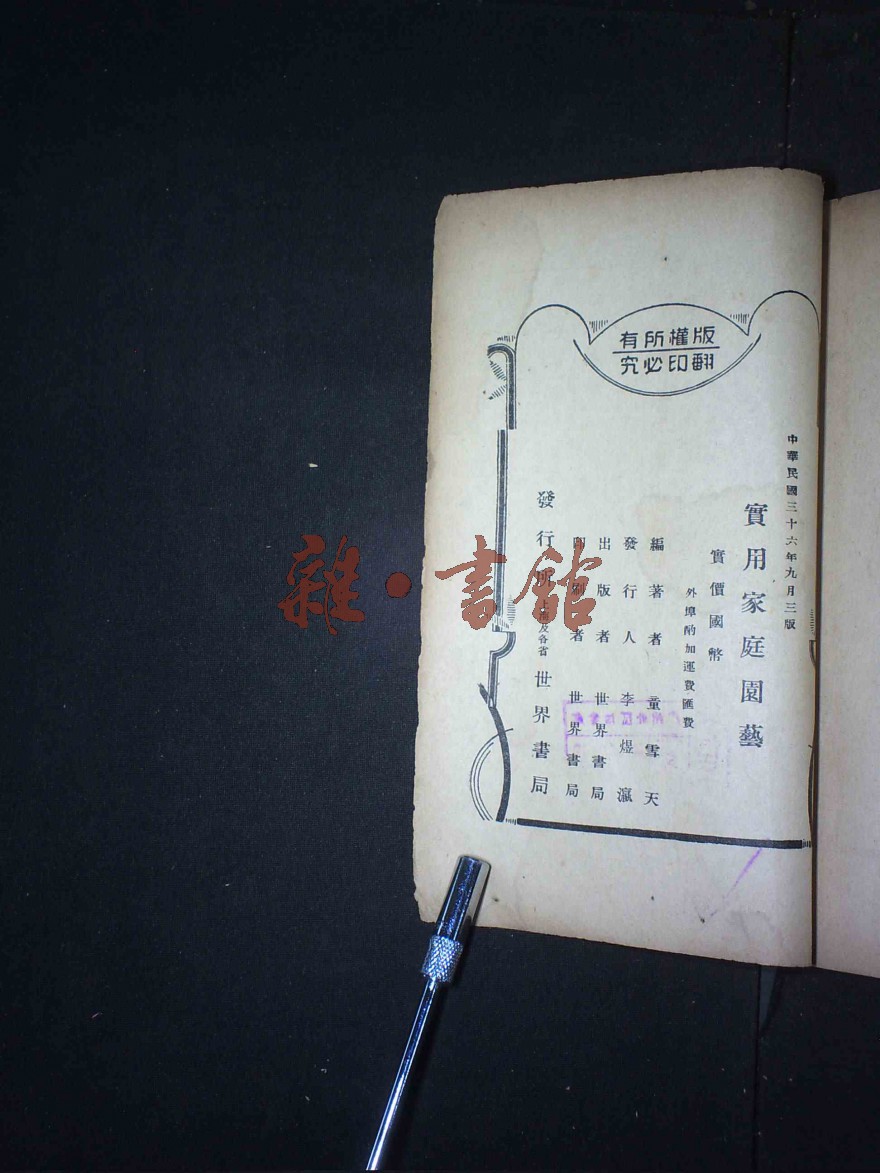 版權所有
翻印必究
中華民國三十六年九月三版
實用家庭園藝
實價國幣
外埠酌加運費匯費
編著者 童雪天
發行人 李煜瀛
出版者 世界書局
印刷者 世界書局
發行所 上海及各省 世界書局
雜·書館